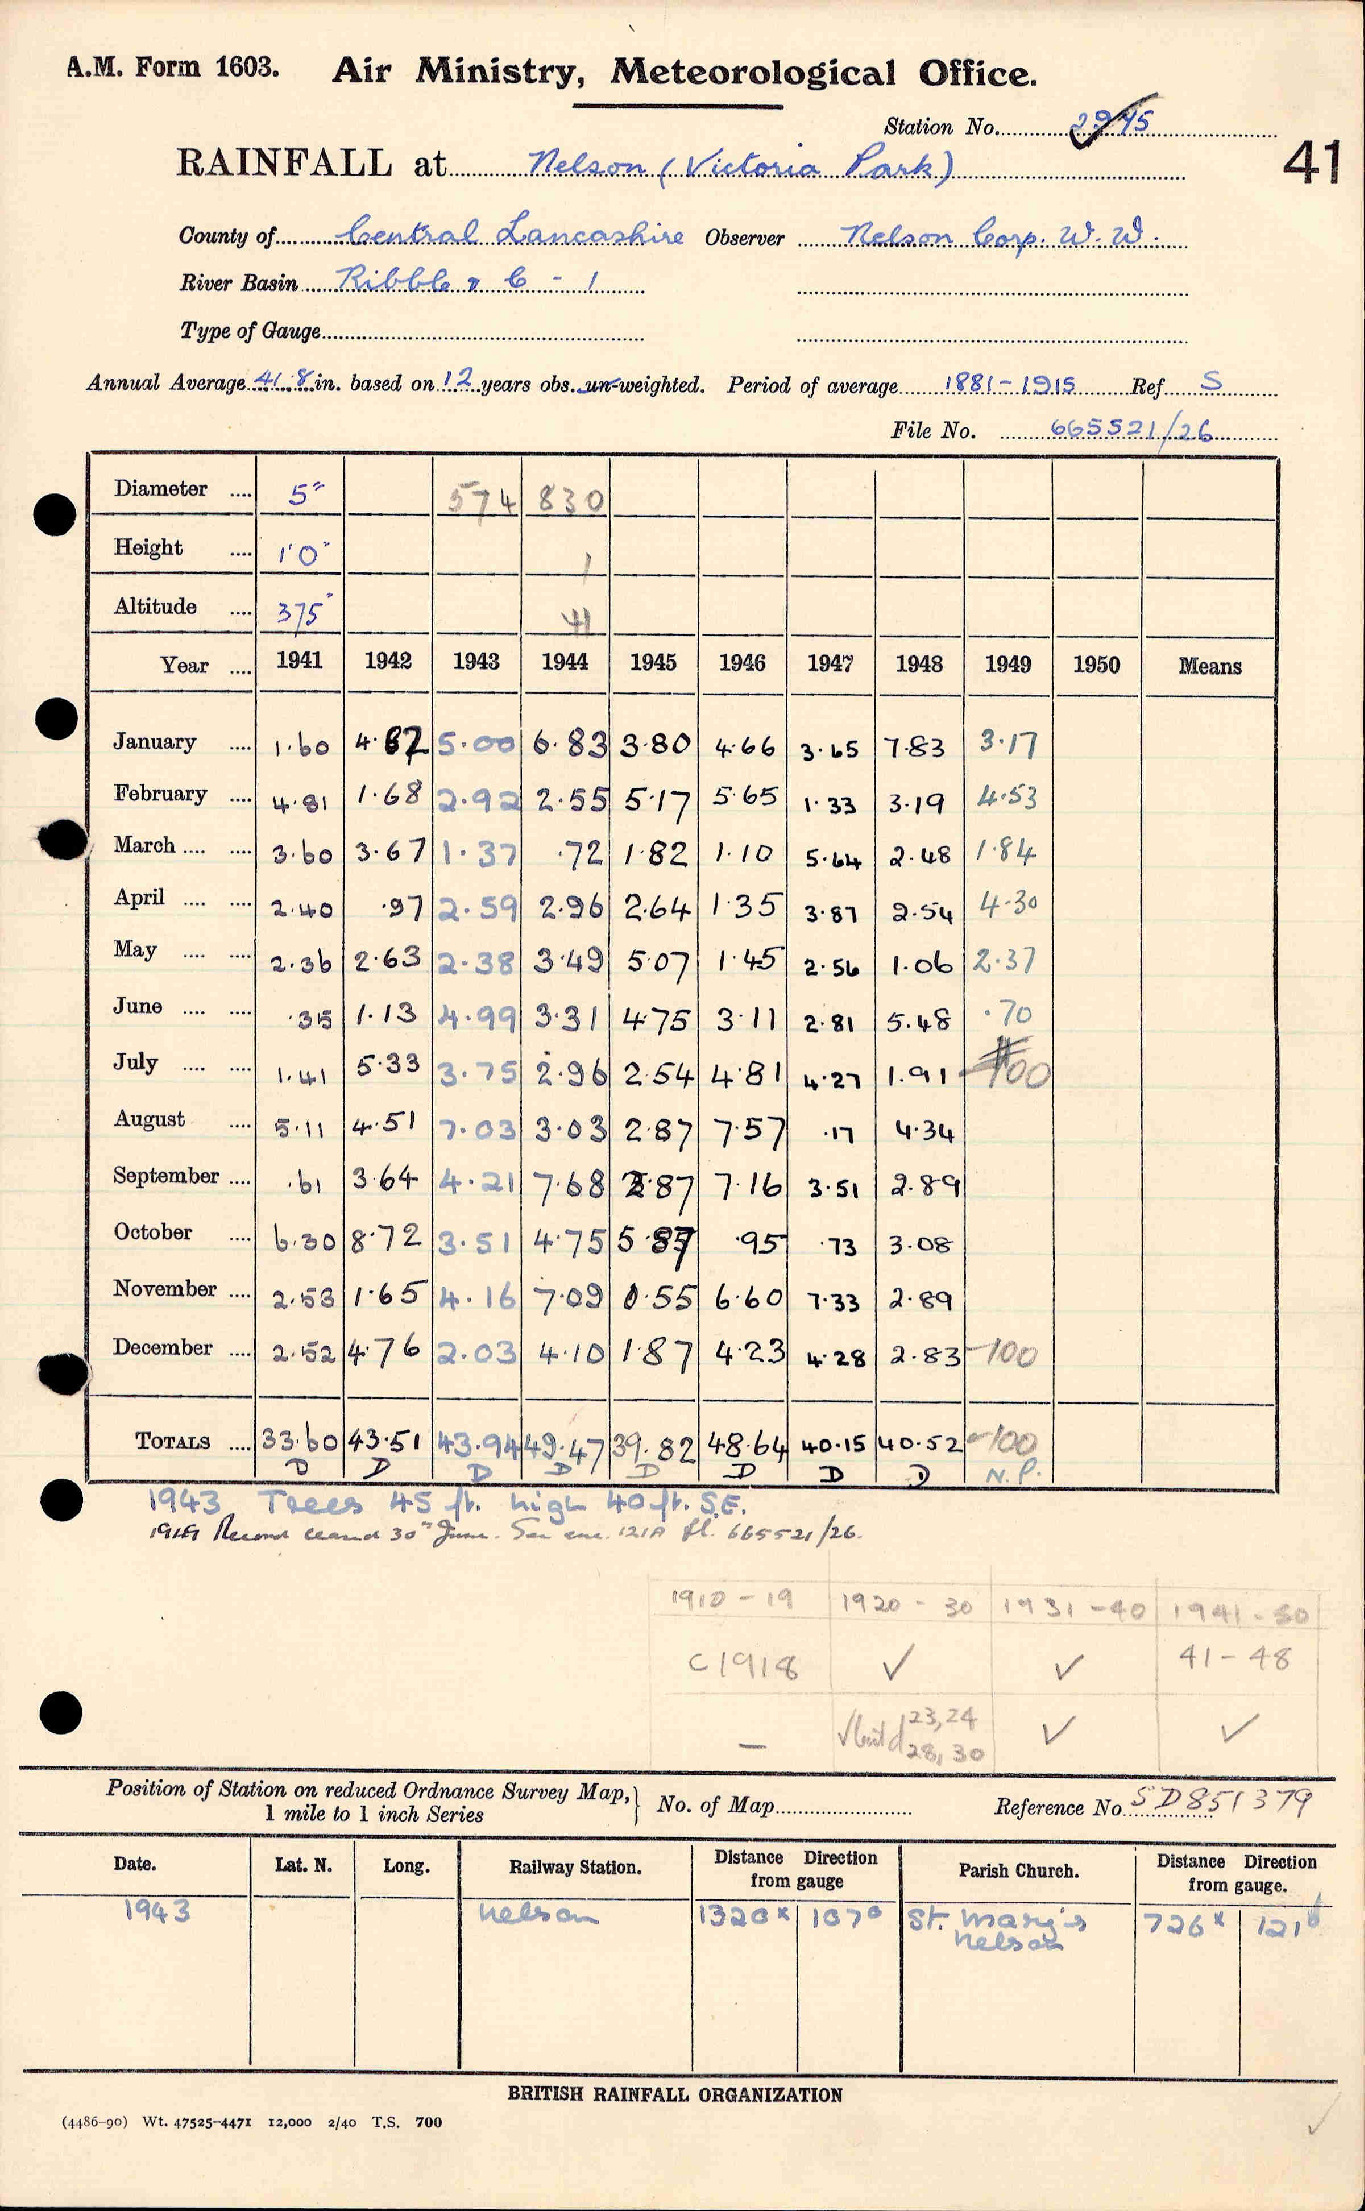 A.M. Form 1603. Air Ministry, Meteorological Office.
Station No. 2945
41
RAINFALL at Nelson (Victoria Park)
County of Central Lancashire Observer Nelson Corp. W.W.
River Basin Ribble, C - 1
Type of Gauge
Annual Average 41.8 in. based on 12 years obs. un-weighted. Period of average 1881-1915 Ref S
File No. 665521/26
Diameter .... 5" 574 830
Height .... 1'0" 1
Altitude .... 375' 41
Year .... 1941 1942 1943 1944 1945 1946 1947 1948 1949 1950 Means
January .... 1.60 4.82 5.00 6.83 3.80 4.66 3.65 7.83 3.17
February .... 4.81 1.68 2.92 2.55 5.17 5.65 1.33 3.19 4.53
March .... .... 3.60 3.67 1.37 .72 1.82 1.10 5.64 2.48 1.84
April .... .... 2.40 .97 2.59 2.96 2.64 1.35 3.87 2.54 4.30
May .... .... 2.36 2.63 2.38 3.49 5.07 1.45 2.56 1.06 2.37
June .... .... .35 1.13 4.99 3.31 4.75 3.11 2.81 5.48 .70
July .... .... 1.41 5.33 3.75 2.96 2.54 4.81 4.27 1.91 -100
August .... 5.11 4.51 7.03 3.03 2.87 7.57 .17 4.34
September .... .61 3.64 4.21 7.68 2.87 7.16 3.51 2.89
October .... 6.30 8.72 3.51 4.75 5.87 .95 .73 3.08
November .... 2.53 1.65 4.16 7.09 0.55 6.60 7.33 2.89
December .... 2.52 4.76 2.03 4.10 1.87 4.23 4.28 2.83 -100
TOTALS .... 33.60 43.51 43.94 49.47 39.82 48.64 40.15 40.52 -100
D D D D D D D D N.P.
1943 Trees 45 ft. high 40 ft. S.E.
1949 Record ceased 30th June. See enc. 121A fl. 665521/26.
1910 - 19 1920 - 30 1931 - 40 1941 - 50
C1918 ✓ ✓ 41 - 48
— ✓ 23, 24 ✓ ✓
28, 30
Position of Station on reduced Ordnance Survey Map,} No. of Map Reference No. SD851379
1 mile to 1 inch Series
Date. Lat. N. Long. Railway Station. Distance Direction from gauge Parish Church. Distance Direction from gauge.
1943 Nelson 1320x 107° St. Mary's 726x 121°
Nelson
BRITISH RAINFALL ORGANIZATION
(4486-90) Wt. 47525-4471 12,000 2/40 T.S. 700